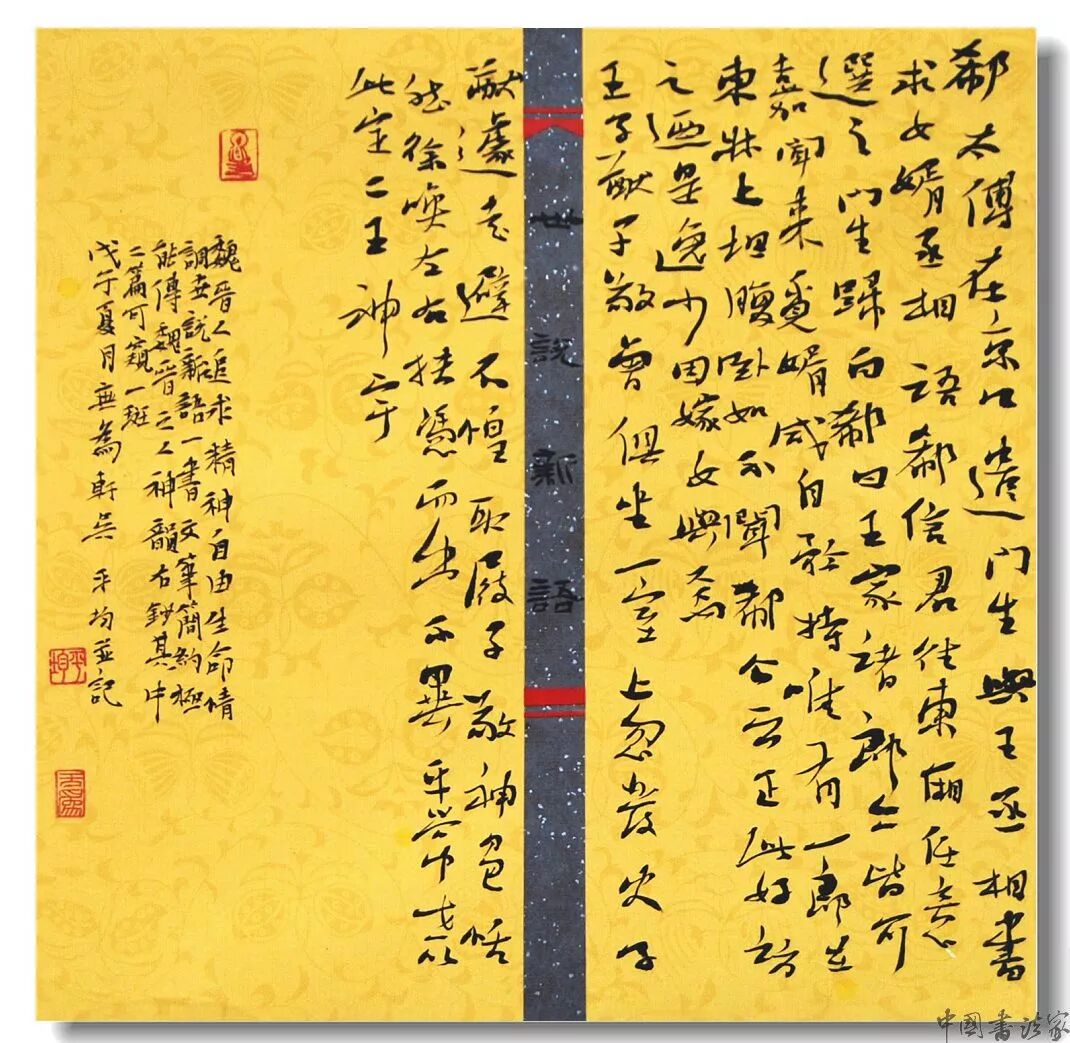 郗太傅在京口遣門生與王丞相書
求女婿丞相語郗信君往東厢任意
選之門生歸白郗曰王家諸郎亦皆可
嘉聞來覓婿咸自矜持唯有一郎在
東牀上坦腹卧如不聞郗公云正此好訪
之迺是逸少因嫁女與焉
王子猷子敬曾俱坐一室上忽發火子
世說新語
猷遽走避不惶取屐子敬神色恬
然徐喚左右扶憑而出不異平常世以
此定二王神宇
魏晋人追求精神自由生命情
調世說新語一書文筆簡約極
能傳魏晋之人神韻右鈔其中
二篇可窺一斑
戊午夏月無為軒吳平均並記
中國書法家